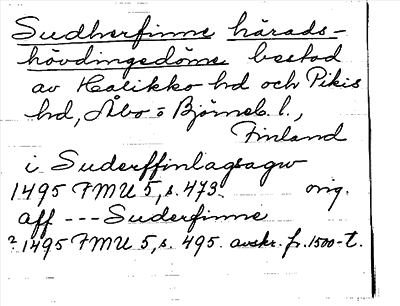 Sudherfinne härads-
hövdingedöme bestod
av Halikko hd och Pikis
hd, Åbo o Björneb. l.,
Finland
i Suderffinlagsagw
1495 FMU 5, s. 473. orig.
aff --- Suderfinne
? 1495 FMU 5, s. 495. avskr. fr. 1500-t.